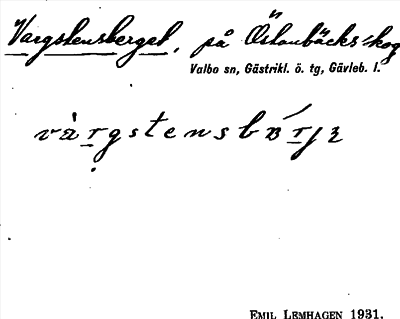 Vargstensberget, på Östanbäcks skog
Valbo sn, Gästrikl. ö. tg, Gävleb. l.
EMIL LEMHAGEN 1931.